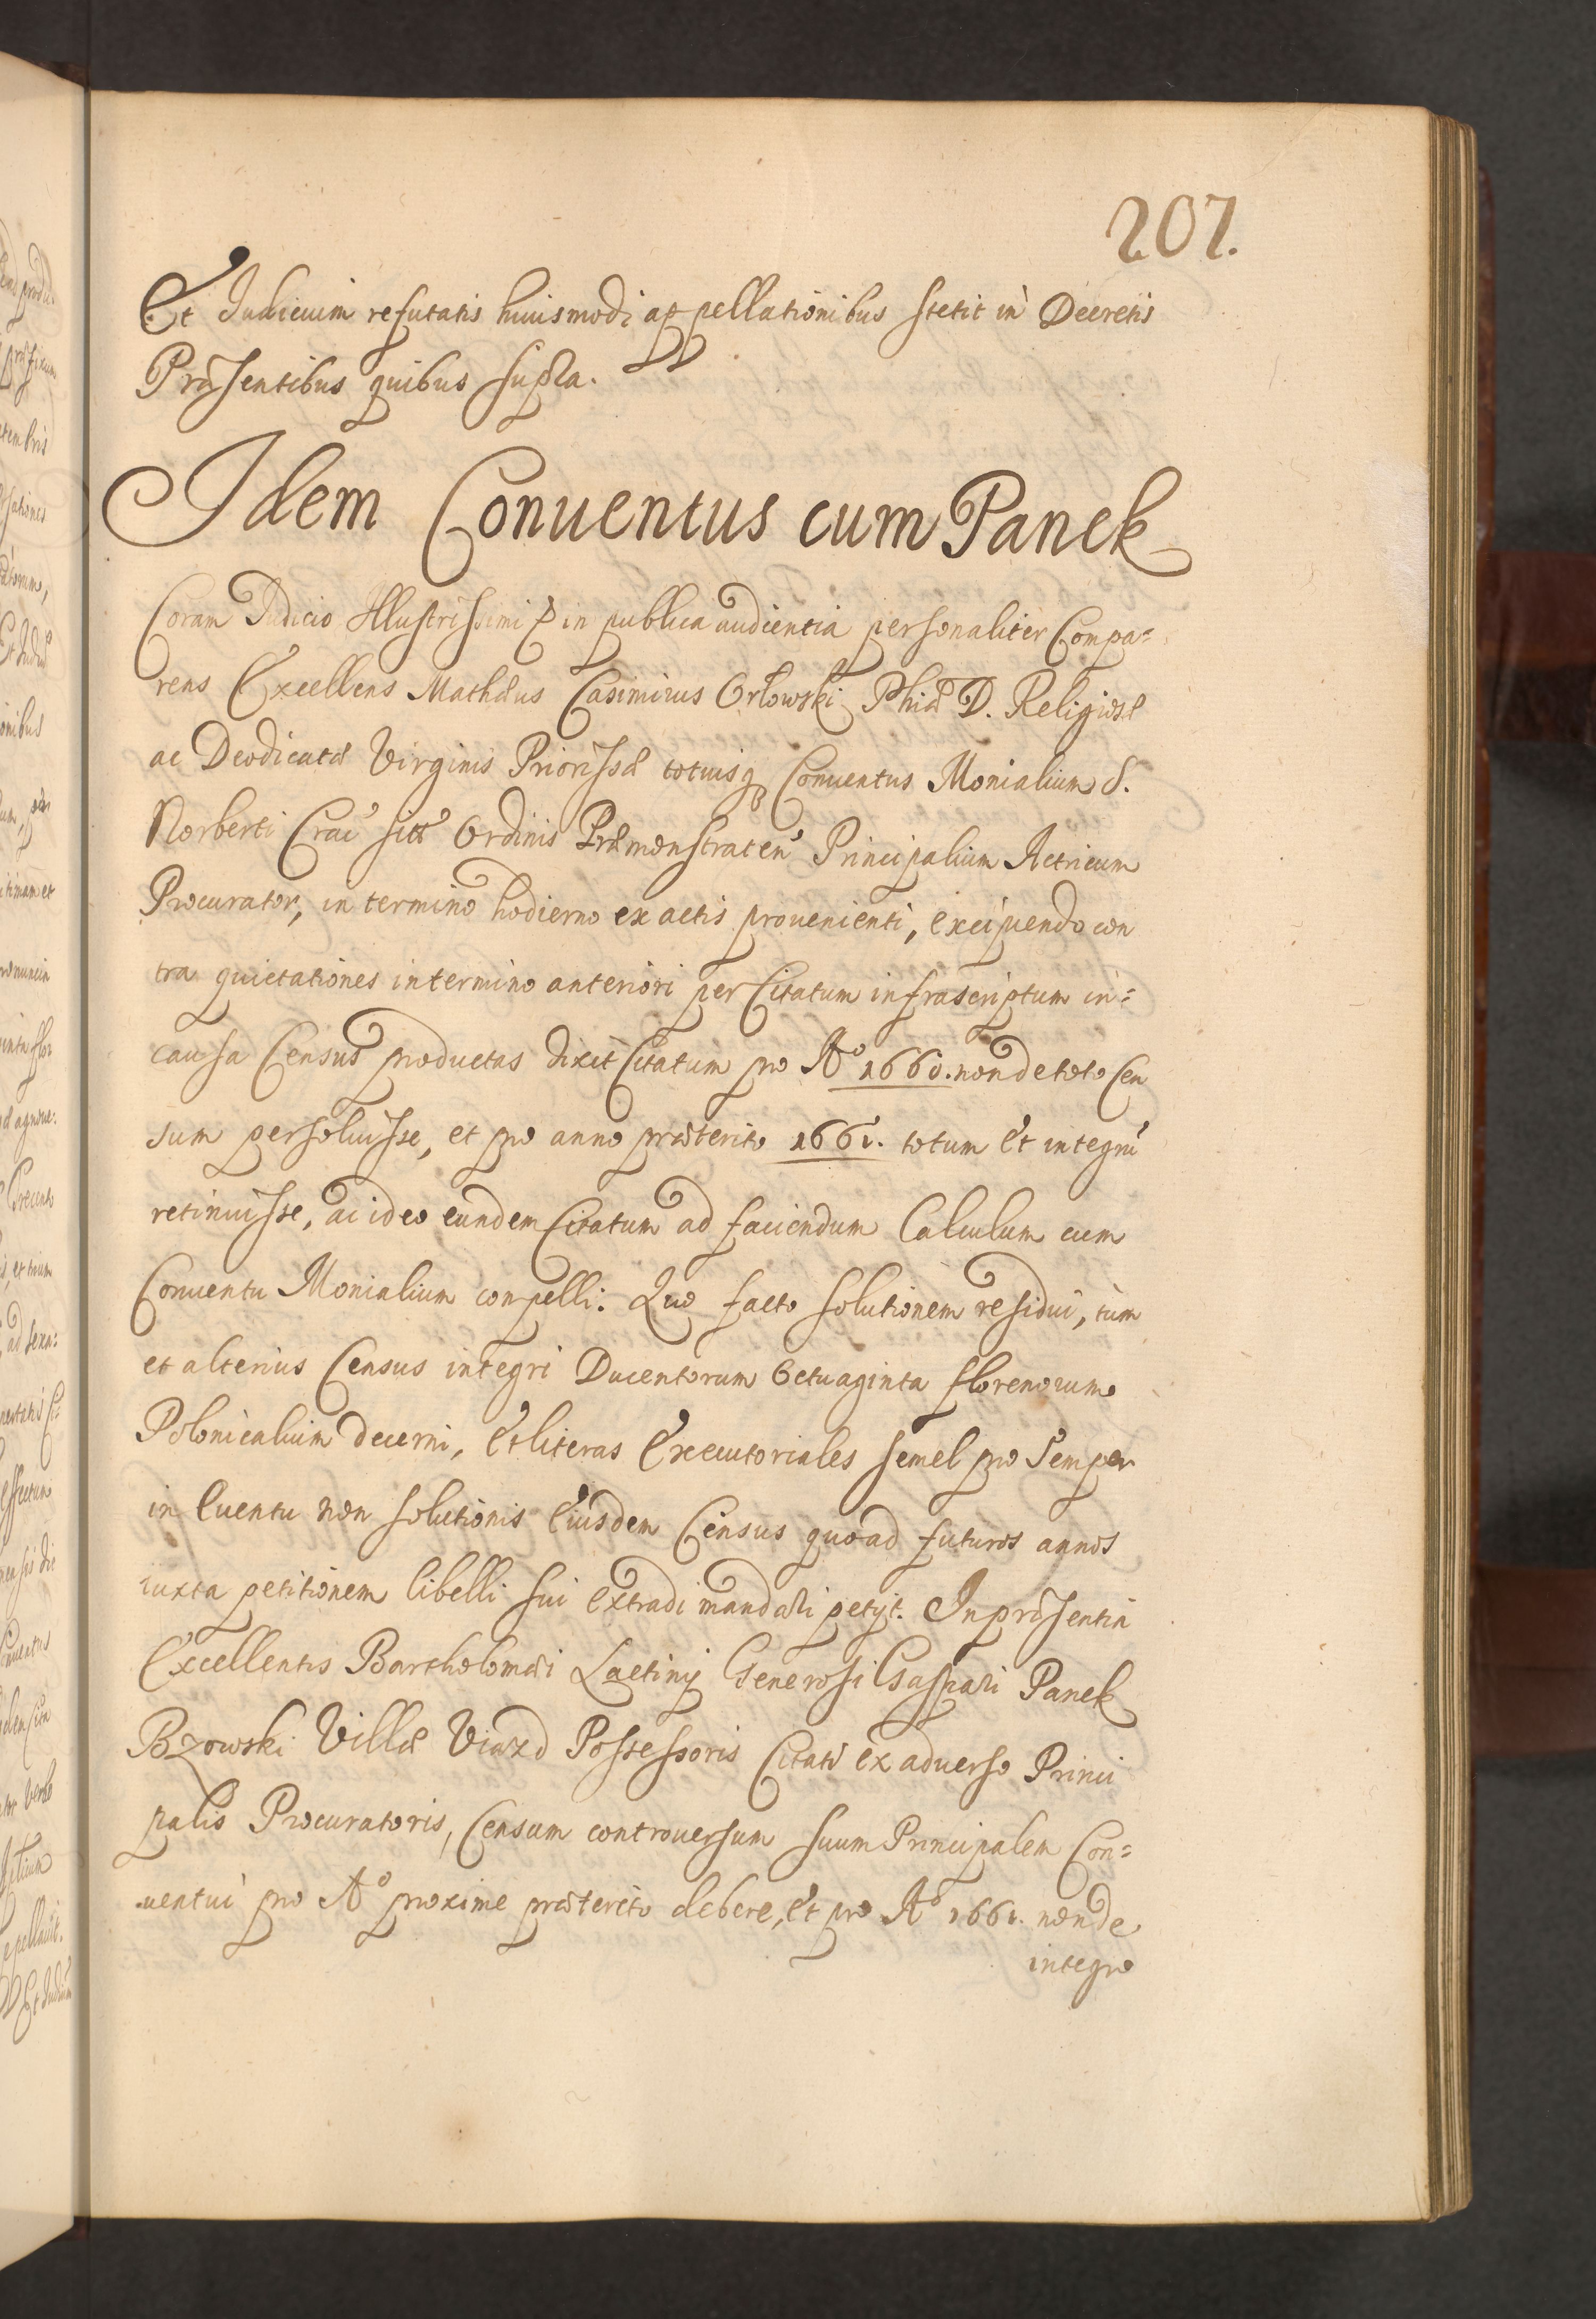 207.
Et Iudicium refutatis huiusmodi appellationibus stetit in Decretis
Præsentibus quibus supra.
Idem Conuentus cum Panek
Coram Iudicio Illustrissimi in publica audientia personaliter Compa=
rens Excellens Mathæus Casimirus Orłowski Phiæ D. Religiosæ
ac Deodicatæ Virginis Priorissæ totiusq Conuentus Monialium S.
Norberti Crac sitæ Ordinis Præmonstraten Principalium Actricum
Procurator, in termino hodierno ex actis prouenienti, excipiendo con
tra quietationes in termino anteriori per Citatum infrascriptum in=
causa Census productas dixit Citatum pro Aº 1660. non de toto Cen
sum persoluisse, et pro anno præterito 1661. totum et integrũ
retinuisse, ac ideo eundem Citatum ad faciendum Calculum cum
Conuentu Monialium compelli: Quo facto solutionem residui, tum
et alterius Census integri Ducentorum Octuaginta florenorum
Polonicalium decerni, et literas Executoriales semel pro semper
in euentu non solutionis eiusdem Census quoad futuros annos
iuxta petitionem libelli sui extradi mandari petyt. In præsentia
Excellentis Bartholomæi Lactiny Generosi Gaspari Panek
Bzowski Villæ Viazd Possessoris Citati ex aduerso Princi
palis Procuratoris, Censum controuersum suum Principalem Con=
uentui pro Aº proxime præterito debere, et pro Aº 1661. non de
integro